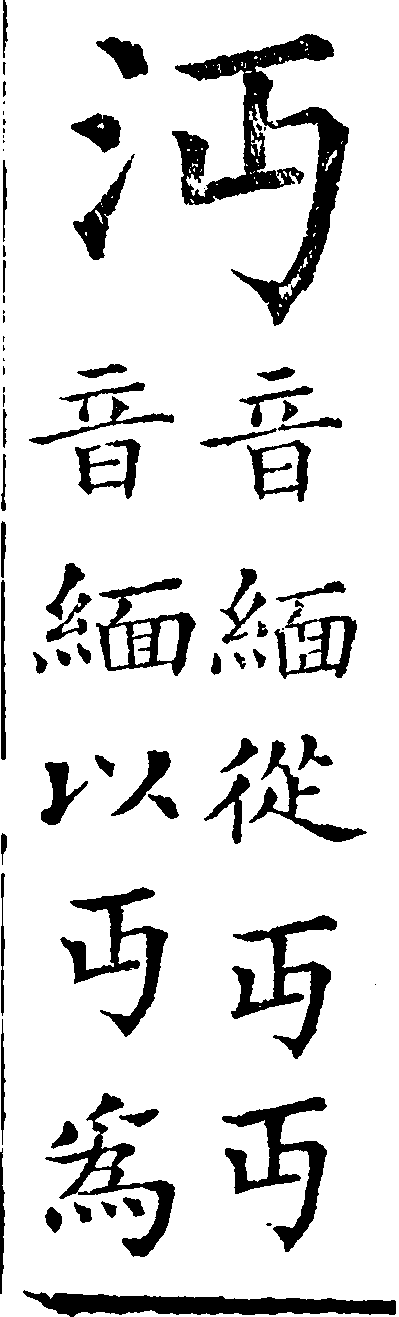 沔
音緬從丏丏
音緬以丏為